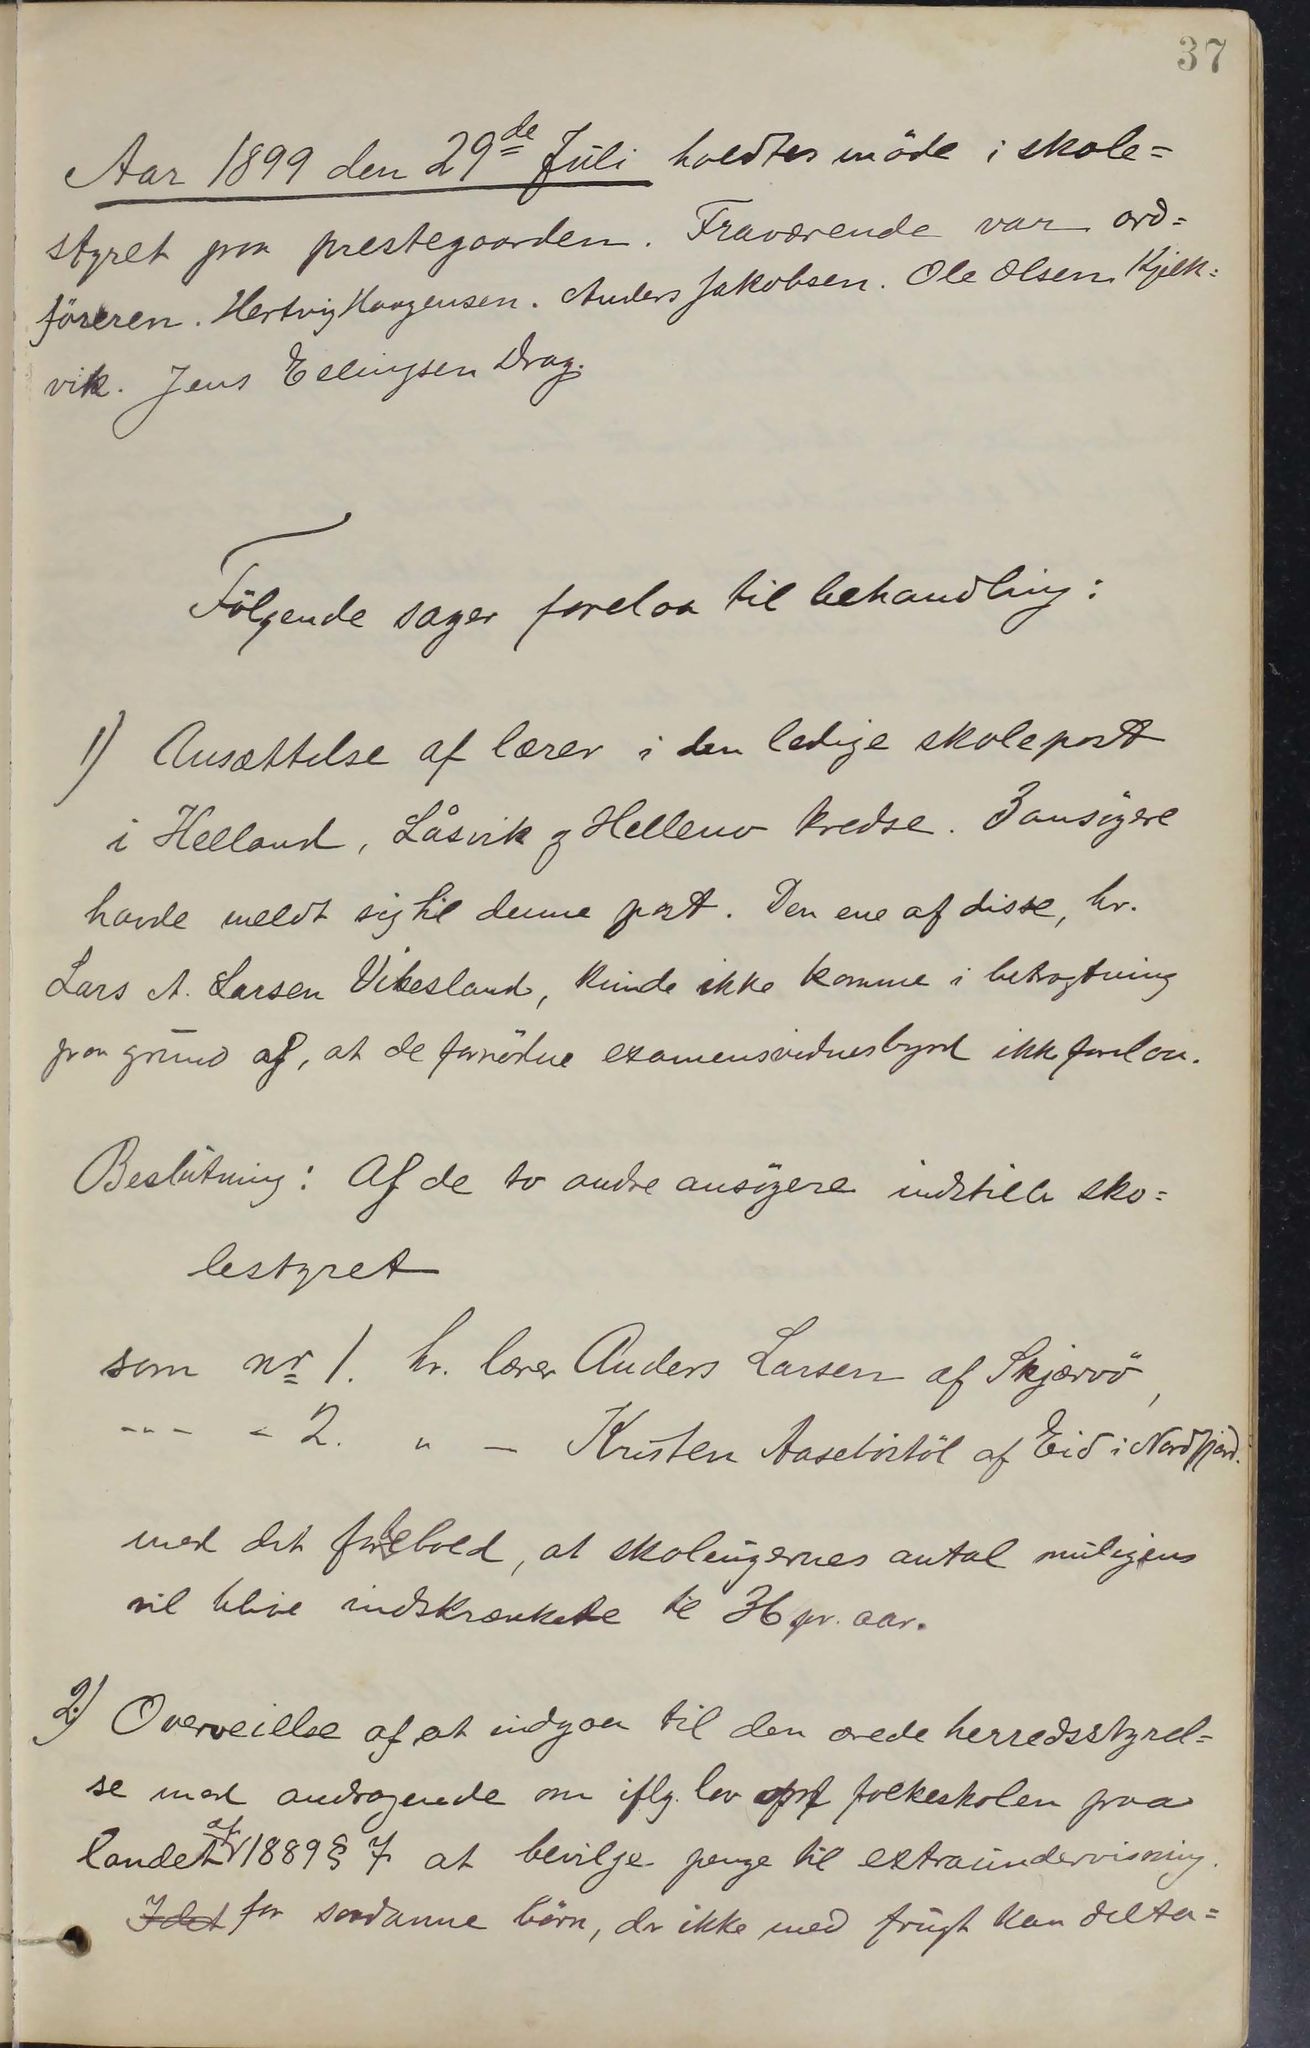 37
Aar 1899 den 29de Juli holdtes möde i skole=
styret paa prestegaarden. Fraværende var ord=
föreren. Hertvig Haagensen. Anders Jakobsen. Ole Olsen Kjelk=
vik. Jens Ellingsen Drag.
Fölgende sager forelaa til behandling:
1) Ansættelse af lærer i den ledige skolepost
i Helland, Låsvik og Hellemo kredse. 3 ansögere
havde meldt sig til denne post. Den ene af disse, hr.
Lars A. Larsen Vikesland, kunde ikke komme i betragtning
paa grund af, at de fornödne examensvidnesbyrd ikke forelaa.
Beslutning: Af de to andre ansögere indstiller sko=
lestyret
som nr 1. hr. lærer Anders Larsen af Skjærvö,
--- " 2. " — Kristen Aasebö af Eid i Nordfjord.
med det forbehold, at skoleugernes antal muligens
vil blive indskrænkede til 36 pr. aar.
2) Overveielse af at indgaa til den ærede herredsstyrel=
se med andragende om iflg. lov folkeskolen paa
landet af 1889 § 7 at bevilge penge til extraundervisning.
Idet for saadanne börn, der ikke med frugt kan delta=